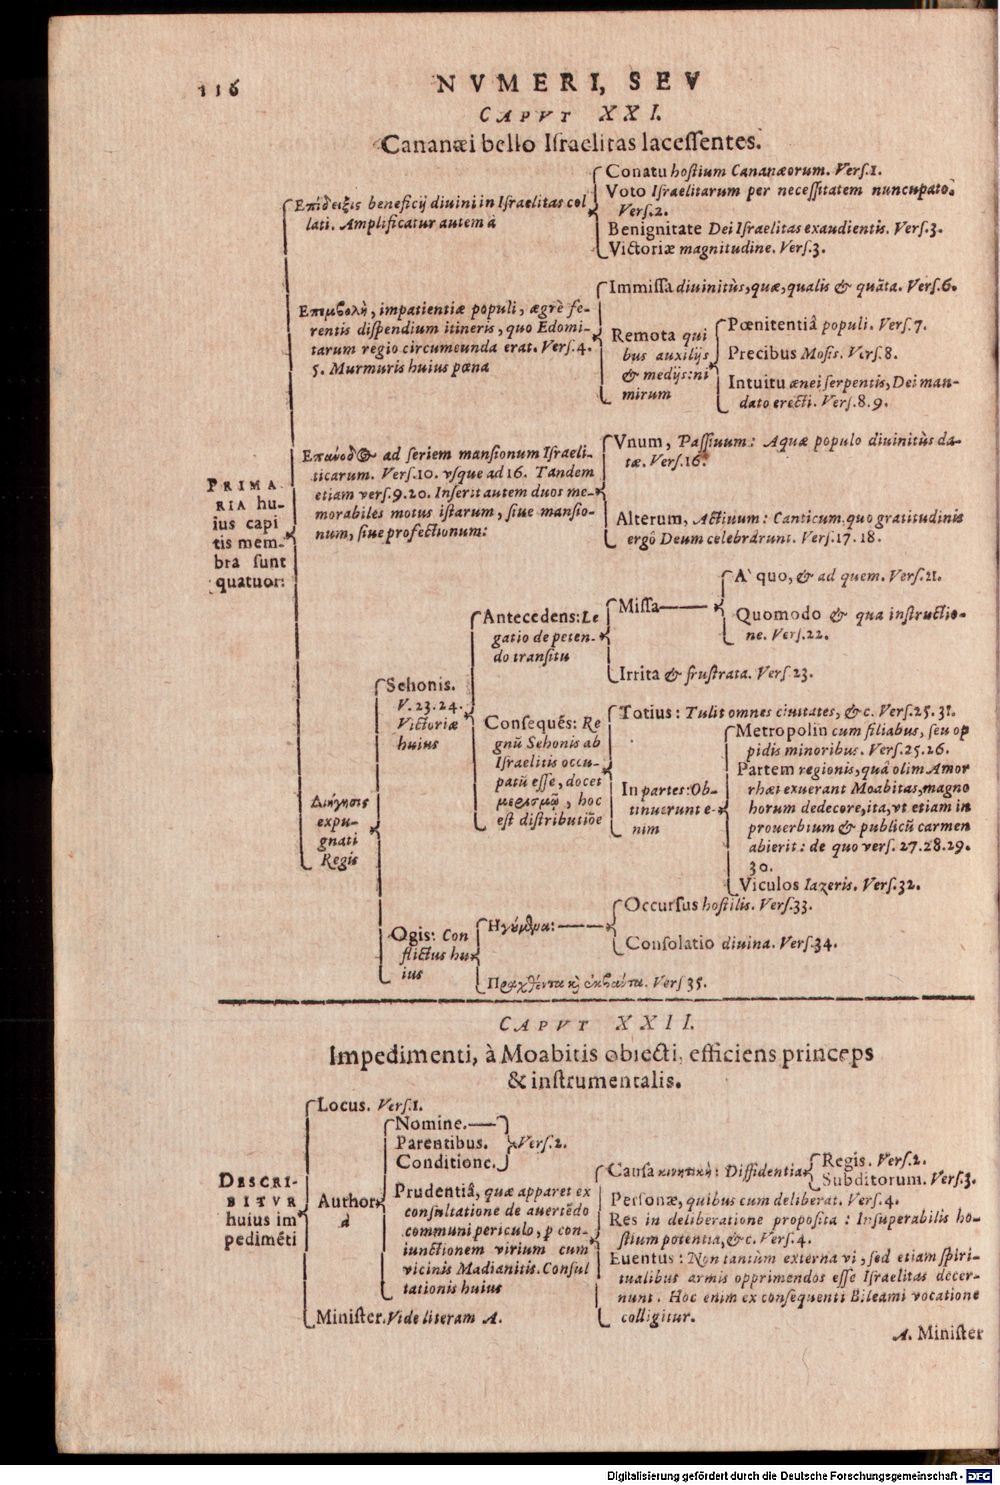 116
NVMERI, SEV
CAPVT XXI.
Cananæi bello Iſraelitas laceſſentes.
PRIMA-
RIA hu-
ius capi
tis mem-
bra ſunt
quatuor:
Επίδειξις beneficij diuini in Iſraelitas col
lati. Amplificatur autem à
Conatu hoſtium Cananæorum. Verſ.1.
Voto Iſraelitarum per neceſſitatem nuncupato.
Verſ.2.
Benignitate Dei Iſraelitas exaudientis. Verſ.3.
Victoriæ magnitudine. Verſ.3.
impatientiæ populi, ægrè fe-
rentis diſpendium itineris, quo Edomi-
tarum regio circumeunda erat. Verſ.4.
5. Murmuris huius pœna
Immiſſa diuinitùs, quæ, qualis & quāta. Verſ.6.
Remota qui
bus auxilijs
& medijs: ni
mirum
Pœnitentiâ populi. Verſ.7.
Precibus Moſis. Verſ.8.
Intuitu ænei ſerpentis, Dei man-
dato erecti. Verſ.8.9.
ad ſeriem manſionum Iſraeli-
ticarum. Verſ.10. vſque ad 16. Tandem
etiam verſ.9.20. Inſerit autem duos me-
morabiles motus iſtarum, ſiue manſio-
num, ſiue profectionum:
Vnum, Paſſiuum: Aquæ populo diuinitùs da-
tæ. Verſ.16.
Alterum, Actiuum: Canticum, quo gratitudinis
ergò Deum celebrârunt. Verſ.17.18.
Διήγησις
expu-
gnati
Regis
Sehonis.
V.23.24.
Victoriæ
huius
Antecedens: Le
gatio de peten-
do tranſitu
Miſſa
A` quo, & ad quem. Verſ.21.
Quomodo & qua inſtructio-
ne. Verſ.22.
Irrita & fruſtrata. Verſ 23.
Conſequēs: Re
gnū Sehonis ab
Iſraelitis occu-
patū eſſe, docet
μερισμῷ, hoc
eſt diſtributiōe
Totius: Tulit omnes ciuitates, &c. Verſ.25.31.
In partes: Ob-
tinuerunt e-
nim
Metropolin cum filiabus, ſeu op
pidis minoribus. Verſ.25.26.
Partem regionis, quâ olim Amor
rhæi exuerant Moabitas, magno
horum dedecore, ita, vt etiam in
prouerbium & publicū carmen
abierit: de quo verſ. 27.28.29.
30.
Viculos Iazeris. Verſ.32.
Ogis: Con
flictus hu-
ius
Ηγούμενα:
Occurſus hoſtilis. Verſ.33.
Conſolatio diuina. Verſ.34.
Πραχθέντα κỳ ἐκβαίντα. Verſ 35.
CAPVT XXII.
Impedimenti, à Moabitis obiecti, efficiens princeps
& inſtrumentalis.
DESCRI-
BITVR
huius im
pedimēti
Locus. Verſ.1.
Author
à
Nomine.
Parentibus.
Conditione.
Verſ.2.
Prudentiâ, quæ apparet ex
conſultatione de auertēdo
communi periculo, p con-
iunctionem virium cum
vicinis Madianitis. Conſul
tationis huius
Cauſa κινητικὴ: Diffidentia
Regis. Verſ.2.
Subditorum. Verſ.3.
Perſonæ, quibus cum deliberat. Verſ.4.
Res in deliberatione propoſita: Inſuperabilis ho-
ſtium potentia, &c. Verſ.4.
Euentus: Non tantùm externa vi, ſed etiam ſpiri-
tualibus armis opprimendos eſſe Iſraelitas decer-
nunt. Hoc enim ex conſequenti Bileami vocatione
colligitur.
Miniſter. Vide literam A.
A. Miniſter
Digitalisierung gefördert durch die Deutsche Forschungsgemeinschaft - DFG